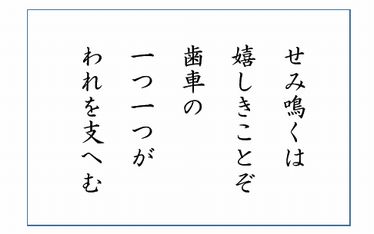 せみ鳴くは
嬉しきことぞ
歯車の
一つ一つが
われを支へむ